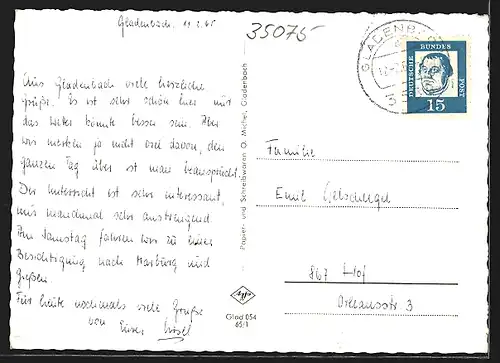 Gladenbach
35075
Aus Gladenbach viele herzliche
Grüße. Es ist sehr schön hier nur
das Wetter könnte besser sein. Aber
wir merken ja nicht viel davon, den
ganzen Tag über ist man beansprucht.
Der Unterricht ist sehr interessant,
nur manchmal sehr anstrengend.
Am Samstag fahren wir zu einer
Besichtigung nach Marburg und
Gießen.
Für heute nochmals viele Grüße
von Eurer
Papier- und Schreibwaren O. Michel, Gladenbach
Agfa
Glad 054
65/1
GLADENBACH
DEUTSCHE BUNDESPOST
15
Familie
Emil
867 Hof
Orleansstr 3